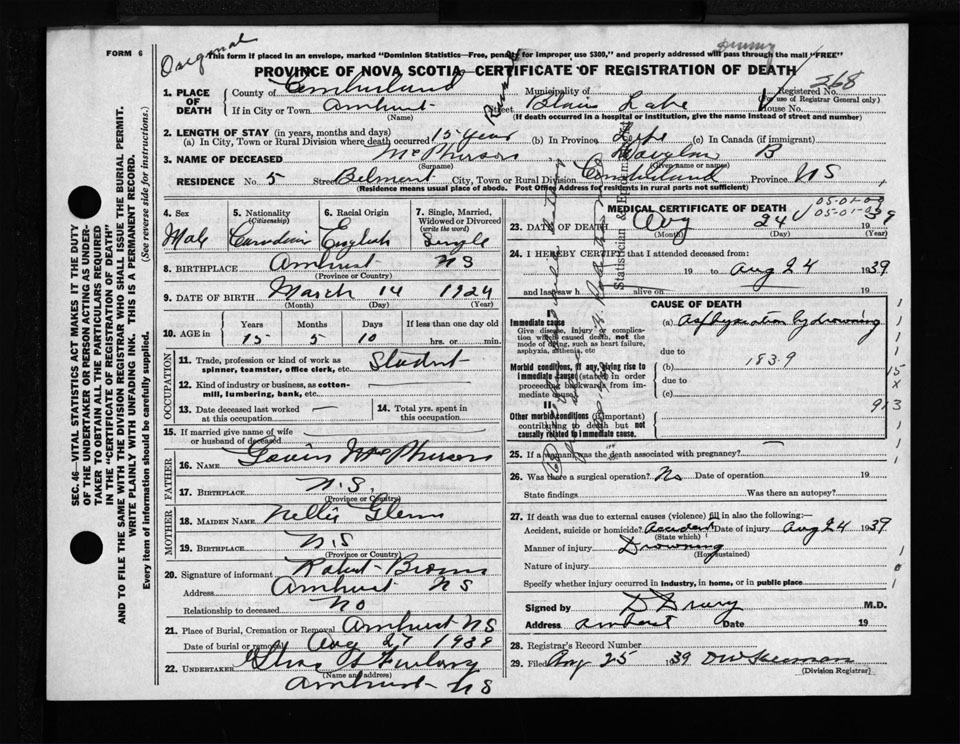 FORM 6
Original
This form if placed in an envelope, marked "Dominion Statistics—Free, penalty for improper use $300," and properly addressed will pass through the mail "FREE"
PROVINCE OF NOVA SCOTIA—CERTIFICATE OF REGISTRATION OF DEATH
368
SEC. 46—VITAL STATISTICS ACT MAKES IT THE DUTY
OF THE UNDERTAKER OR PERSON ACTING AS UNDER-
TAKER TO OBTAIN ALL THE PARTICULARS REQUIRED
IN THE "CERTIFICATE OF REGISTRATION OF DEATH"
AND TO FILE THE SAME WITH THE DIVISION REGISTRAR WHO SHALL ISSUE THE BURIAL PERMIT.
WRITE PLAINLY WITH UNFADING INK. THIS IS A PERMANENT RECORD.
Every item of information should be carefully supplied. (See reverse side for instructions.)
1. PLACE OF DEATH County of Cumberland Municipality of Registered No.
(For use of Registrar General only)
If in City or Town Amherst Street Blair Lake House No.
(Name) (If death occurred in a hospital or institution, give the name instead of street and number)
2. LENGTH OF STAY (in years, months and days)
(a) In City, Town or Rural Division where death occurred 15 Years (b) In Province Life (c) In Canada (if immigrant)
3. NAME OF DECEASED McPherson B
(Surname) (Given name or names)
RESIDENCE No. 5 Street Belmont City, Town or Rural Division Cumberland Province NS
(Residence means usual place of abode. Post Office Address for residents in rural parts not sufficient)
4. Sex Male
5. Nationality (Citizenship) Canadian
6. Racial Origin English
7. Single, Married, Widowed or Divorced (write the word) Single
8. BIRTHPLACE Amherst NS
(Province or Country)
9. DATE OF BIRTH March 14 1924
(Month) (Day) (Year)
10. AGE in Years 15 Months 5 Days 10 If less than one day old hrs. or min.
OCCUPATION
11. Trade, profession or kind of work as spinner, teamster, office clerk, etc. Student
12. Kind of industry or business, as cotton-mill, lumbering, bank, etc.
13. Date deceased last worked at this occupation
14. Total yrs. spent in this occupation
15. If married give name of wife or husband of deceased
FATHER
16. NAME Gavin McPherson
17. BIRTHPLACE N.S.
(Province or Country)
MOTHER
18. MAIDEN NAME Nellie Glenn
19. BIRTHPLACE N.S
(Province or Country)
20. Signature of informant Robert Brown
Address Amherst NS
Relationship to deceased No
21. Place of Burial, Cremation or Removal Amherst NS
Date of burial or removal Aug 27 1939
22. UNDERTAKER Furlong
(Name and address)
Amherst NS
MEDICAL CERTIFICATE OF DEATH
05-01-09
05-01-09
23. DATE OF DEATH Aug 24 39
(Month) (Day) (Year)
24. I HEREBY CERTIFY that I attended deceased from:
19 to Aug 24 1939
and last saw h alive on 19
CAUSE OF DEATH
I
Immediate cause
Give disease, injury or complication which caused death, not the mode of dying, such as heart failure, asphyxia, asthenia, etc
(a) Asphyxiation by drowning
due to
Morbid conditions, if any, giving rise to immediate cause (stated) in order proceeding backwards from immediate cause
(b) 183.9
due to
(c)
II
Other morbid conditions (if important) contributing to death but not causally related to immediate cause.
15
x
913
25. If a woman was the death associated with pregnancy?
26. Was there a surgical operation? No Date of operation 19
State findings Was there an autopsy?
27. If death was due to external causes (violence) fill in also the following:—
Accident, suicide or homicide? Accident Date of injury Aug 24 1939
(State which)
Manner of injury Drowning
(How sustained)
Nature of injury
Specify whether injury occurred in industry, in home, or in public place
Signed by D Drury M.D.
Address Amherst Date 19
28. Registrar's Record Number
29. Filed Aug 25 1939
(Division Registrar)